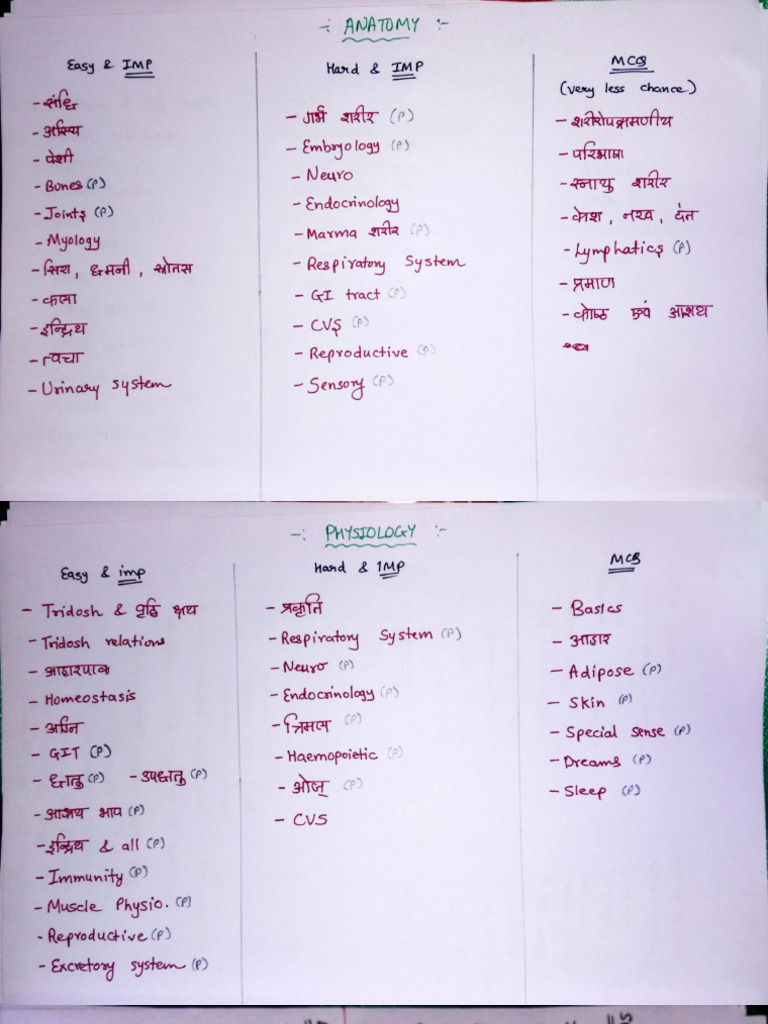 -: ANATOMY :-
Easy & IMP
- संधि
- अस्थि
- पेशी
- Bones (P)
- Joints (P)
- Myology
- सिरा, धमनी, स्रोतस
- कला
- इन्द्रिय
- त्वचा
- Urinary system
Hard & IMP
- गर्भ शरीर (P)
- Embryology (P)
- Neuro
- Endocrinology
- Marma शरीर (P)
- Respiratory System
- GI tract (P)
- CVS (P)
- Reproductive (P)
- Sensory (P)
MCQ
(very less chance)
- शरीरोपक्रमणीय
- परिभाषा
- स्नायु शरीर
- केश, नख, दंत
- Lymphatics (P)
- प्रमाण
- कोष्ठ एवं आशय
-: PHYSIOLOGY :-
Easy & imp
- Tridosh & वृद्धि क्षय
- Tridosh relations
- आहारपाक
- Homeostasis
- अग्नि
- GIT (P)
- धातु (P) - उपधातु (P)
- आश्रय भाव (P)
- इन्द्रिय & all (P)
- Immunity (P)
- Muscle Physio. (P)
- Reproductive (P)
- Excretory system (P)
Hard & IMP
- प्रकृति
- Respiratory System (P)
- Neuro (P)
- Endocrinology (P)
- त्रिमल (P)
- Haemopoietic (P)
- ओज् (P)
- CVS
MCQ
- Basics
- आहार
- Adipose (P)
- Skin (P)
- Special sense (P)
- Dreams (P)
- Sleep (P)